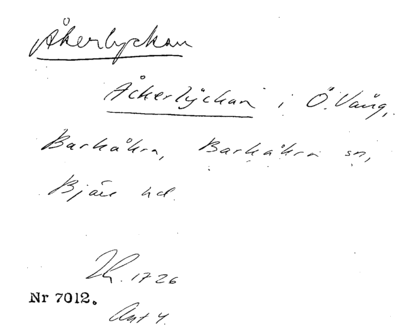 Åkerlyckan
Åckerlÿckan i Ö. Vång,
Barkåkra, Barkåkra sn,
Bjäre hd.
1726
Nr 7012.
Akt 4.